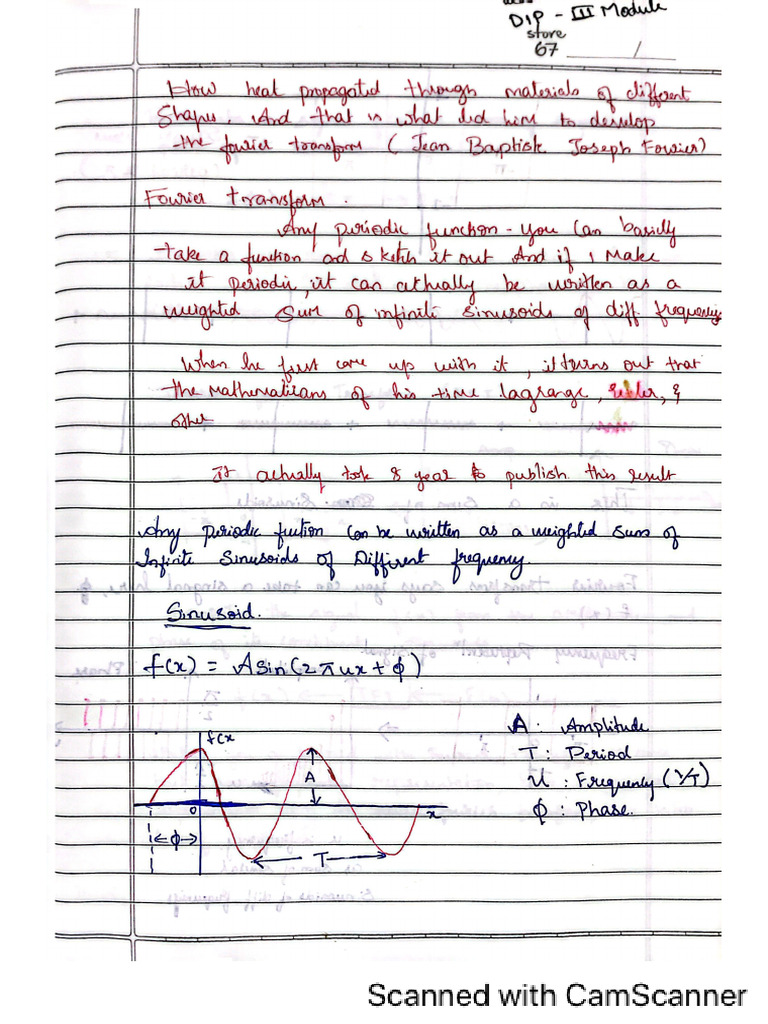 DIP - III Module
store
67
How heat propagated through materials of different
Shapes. And that is what led him to develop
the fourier transform (Jean Baptisk Joseph Fourier)
Fourier transform.
Any periodic function - you can basiclly
take a function and sketch it out And if I Make
it periodic, it can actually be written as a
weighted sum of infinite sinusoids of diff frequency
When he first came up with it, it turns out that
the Mathematicians of his time lagrange, &
other
It actually took 8 year to publish this result
Any periodic fuction can be written as a weighted sum of
Infinite Sinusoids of Different frequency.
Sinusoid.
f(x) = A sin(2πux + ϕ)
A : Amplitude
T : Period
u : Frequency (1/T)
ϕ : Phase.
f(x
A
0
x
ϕ
T
Scanned with CamScanner